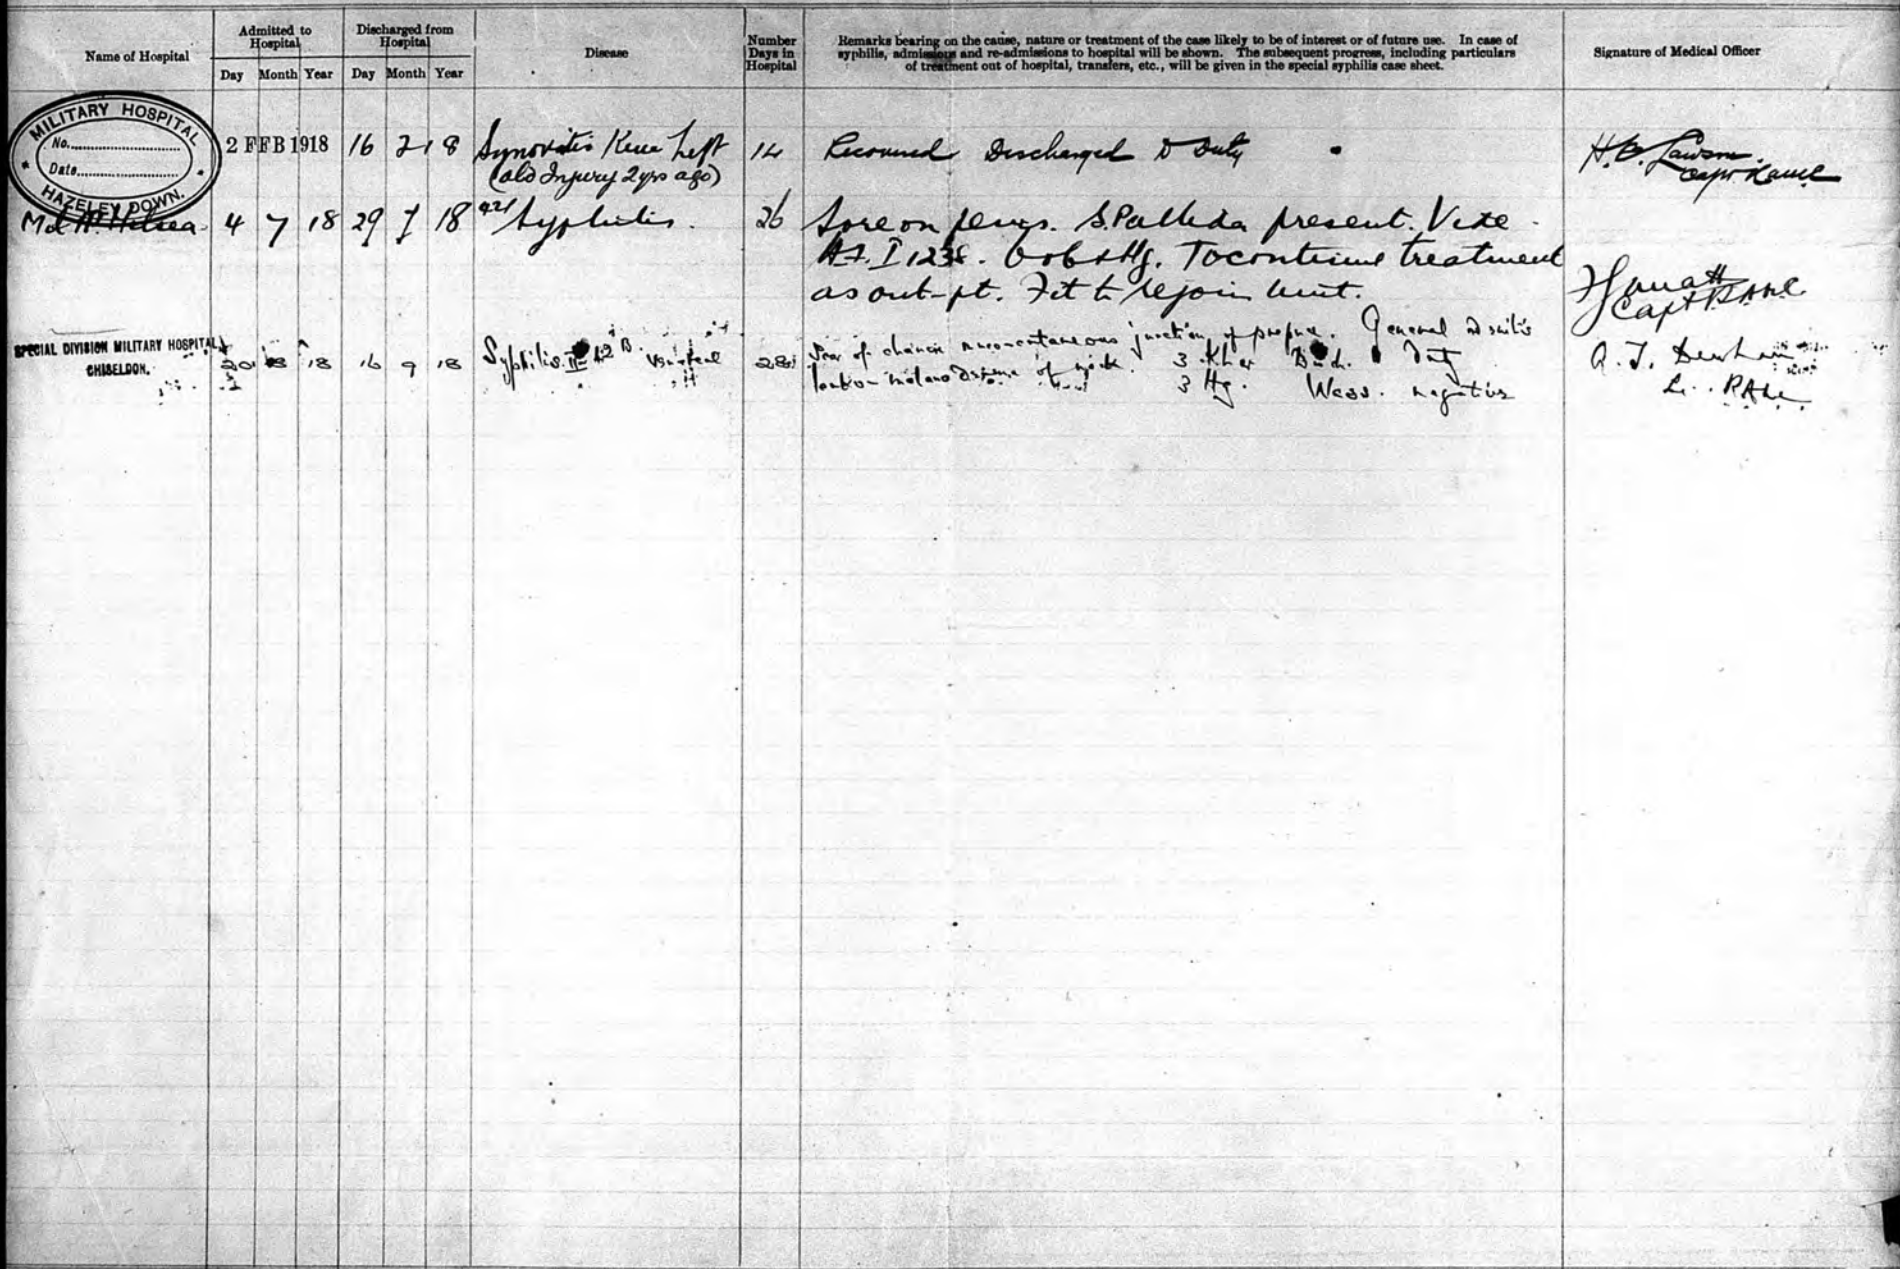 Name of Hospital
Admitted to Hospital
Day Month Year
Discharged from Hospital
Day Month Year
Disease
Number Days in Hospital
Remarks bearing on the cause, nature or treatment of the case likely to be of interest or of future use. In case of
syphilis, admissions and re-admissions to hospital will be shown. The subsequent progress, including particulars
of treatment out of hospital, transfers, etc., will be given in the special syphilis case sheet.
Signature of Medical Officer
MILITARY HOSPITAL
No.
Date
HAZELEY DOWN.
2 FEB 1918 16 2 18 Synovitis Knee Left 14 Recovered Discharged to Duty H. Lawson
(old Injury 2 yrs ago) Capt RAMC
4 7 18 29 7 18 Syphilis. 26 Sore on penis. S. Pallida present. Vide
A.F. I 1238. Hg. To continue treatment
as out-pt. Fit to rejoin unit.
Capt RAMC
SPECIAL DIVISION MILITARY HOSPITAL
CHISELDON.
20 8 18 16 9 18 Syphilis 28 Scar of chancre junction of General adenitis
of neck. 3 Duty
3 Hg. Wass. negative